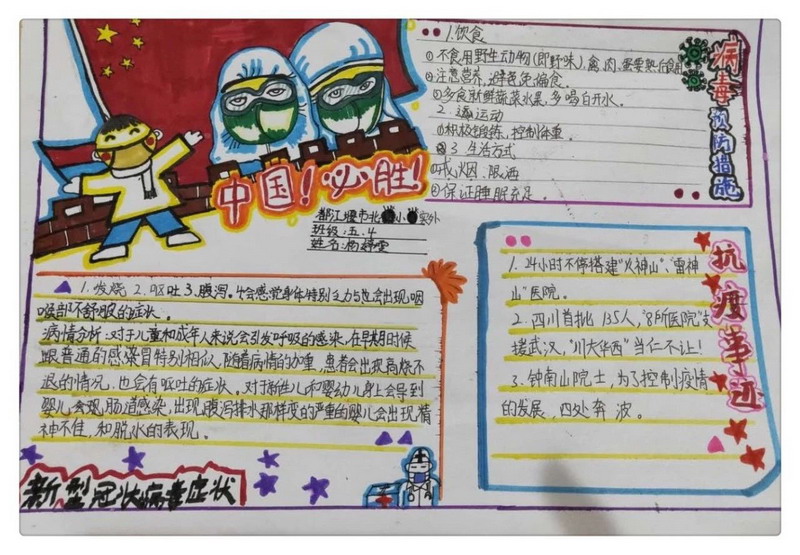 中国！必胜！
都江堰市北小实外
班级：五.4
姓名：
1.饮食
①不食用野生动物(即野味)，禽、肉、蛋要熟食用
②注意营养，避免偏食。
③多食新鲜蔬菜水果，多喝白开水。
2.运动
①积极锻炼，控制体重。
3.生活方式
①戒烟.限酒
②保证睡眠充足。
病毒预防措施
1.发烧2.呕吐3.腹泻。4会感觉身体特别乏力与也会出现咽
喉部不舒服的症状。
病情分析:对于儿童和成年人来说会引发呼吸的感染，在早期时候
跟普通的感染冒特别相似，随着病情的加重，患者会出现高烧不
退的情况，也会有呕吐的症状。对于新生儿和婴幼儿身上会导到
婴儿出现肠道感染，出现腹泻排水那样变的严重的婴儿会出现精
神不佳，和脱水的表现。
新型冠状病毒症状
1.24小时不停搭建“火神山”、“雷神
山”医院。
2.四川首批135人，“8所医院”支
援武汉，“川大华西”当仁不让！
3.钟南山院士，为了控制疫情
的发展，四处奔波。
抗疫事迹